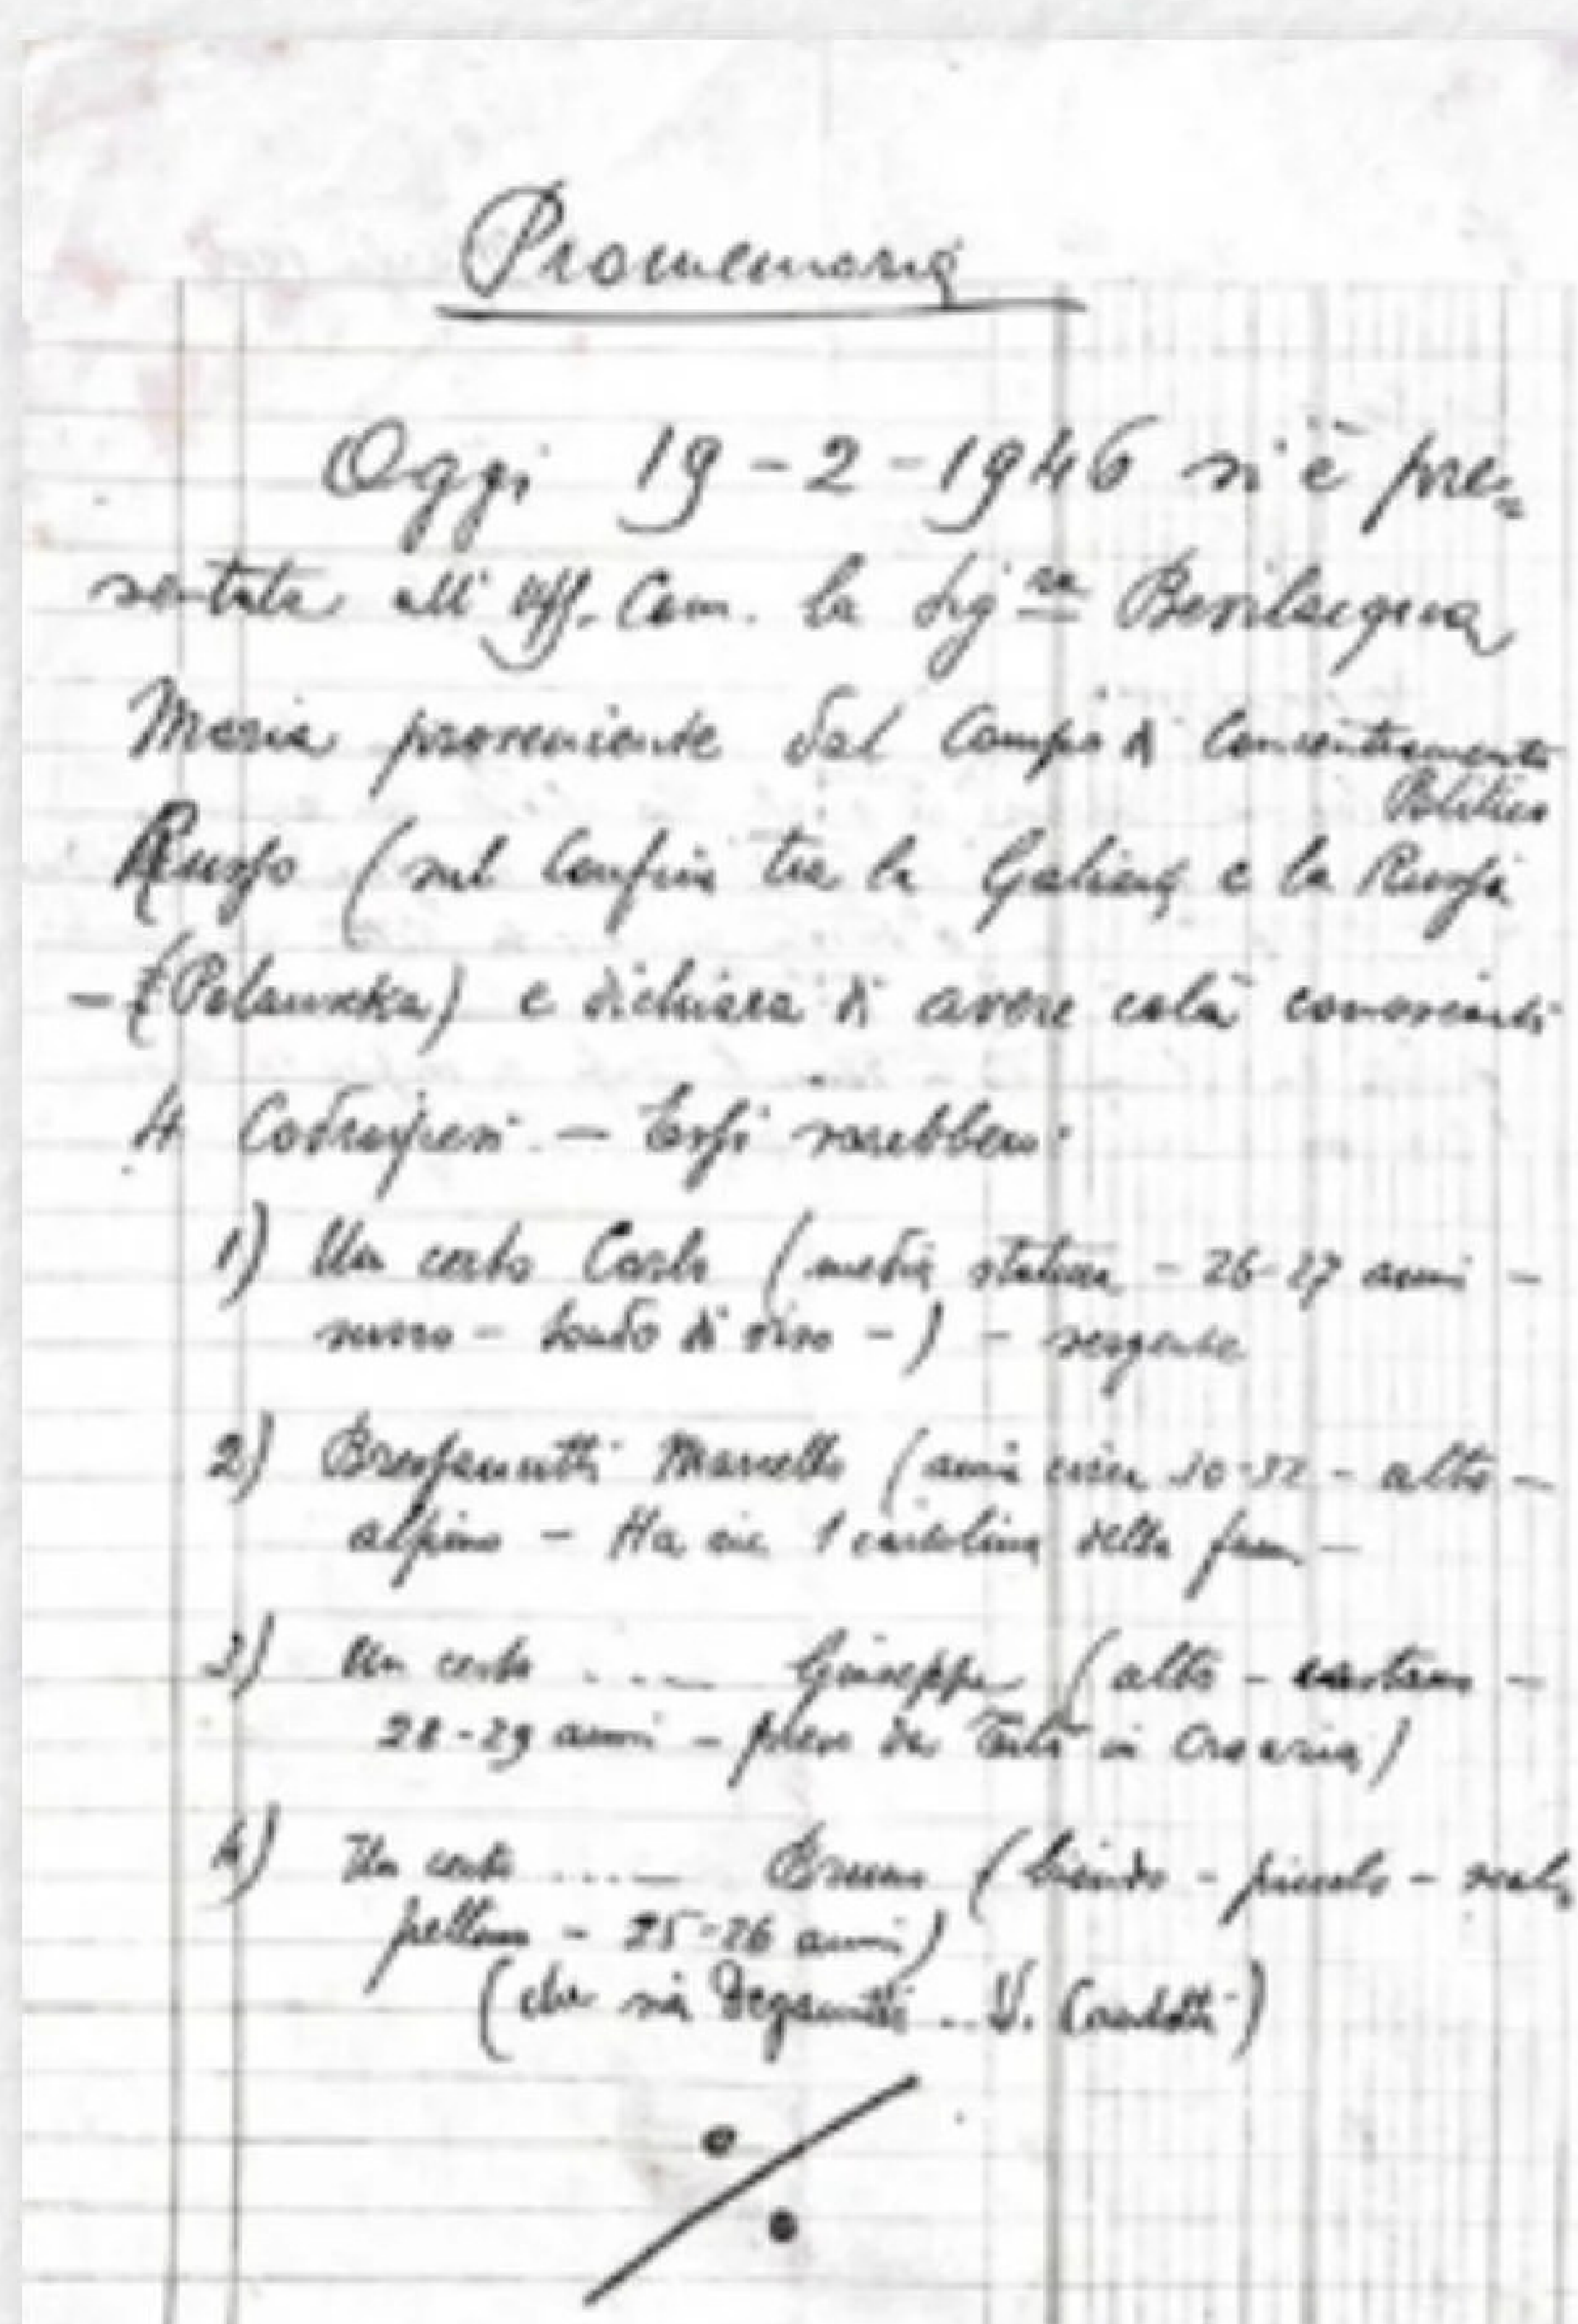 Promemoria
Oggi 19-2-1946 si è pre=
sentata all'Uff. Com. la Sig.ra Bevilacqua
Maria proveniente dal Campo di Concentramento
Politico
Russo (sul confine tra la Galizia e la Russia
- (Polawska) e dichiara di avere colà conosciuti
4 Codroipesi. - Essi sarebbero:
1) Un certo Carlo (media statura - 26-27 anni -
- tondo di viso -) - sergente
2) Bressanutti Marcello (anni circa 30-32 - alto -
alpino - Ha ric. 1 cartolina della fam. -
3) Un certo ..... Giuseppe (alto - castano -
28-29 anni - preso da Tito in Croazia)
4) Un certo ..... Bruno (biondo - piccolo -
25-26 anni)
(che sia Deganutti .. V. Candotti)